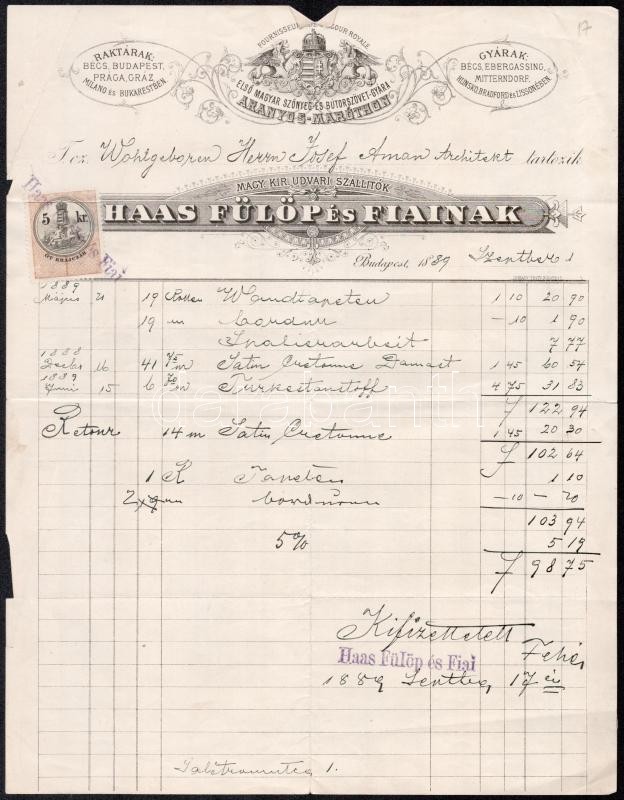 17
FOURNISSEUR COUR ROYALE
RAKTÁRAK:
BÉCS, BUDAPEST,
PRÁGA, GRÁZ,
MILANO ÉS BUKARESTBEN.
ELSŐ MAGYAR SZŐNYEG-ÉS BUTORSZÖVET-GYÁRA
ARANYOS-MARÓTHON
GYÁRAK:
BÉCS, EBERGASSING,
MITTERNDORF,
HLINSKO, BRADFORD ÉS LISSONÉBEN.
Wohlgeboren Herrn Josef Aman Architekt tartozik
MAGY. KIR. UDVARI SZÁLLITÓK
HAAS FÜLÖP ÉS FIAINAK
5 kr.
ÖT KRAJCZÁR
Haas és Fiai
Budapest, 1889 Szeptber 1
1889
Május 21 19 Rollen Wandtapeten 1 10 20 90
19 m bordur – 10 1 90
7 77
1888
Deczber 16 41 75/m Satin Cretonne Damast 1 45 60 54
1889
Juni 15 6 70/m Turkestanstoff 4 75 31 83
f 122 94
Retour 14 m Satin Cretonne 1 45 20 30
f 102 64
1 R Tapeten 1 10
2 m borduren – 10 – 20
103 94
5% 5 19
f 98 75
Kifizettetett
Haas Fülöp és Fiai
Fehér
1889 17 én
1.